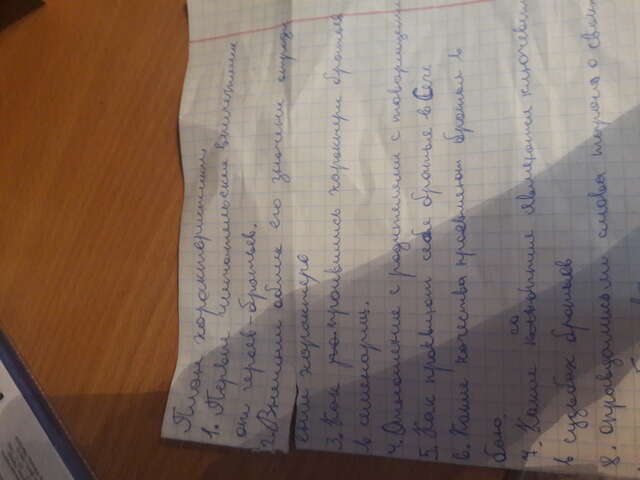 План характористики.
1. Первые читательские впечатления
от героев-братьев.
2. Внешний облик его значени отраж
ении характера
3. Как проявились характеры братьев
в семенарии.
4. Отношение с родителями с товарищеми
5. Как проевляют себе братья в Сече
6. Какие качества проевляют братья в
бою
7. Какие события являются ключевыми
в судьбах братьев
8. оправдались ли слова тараса о своих